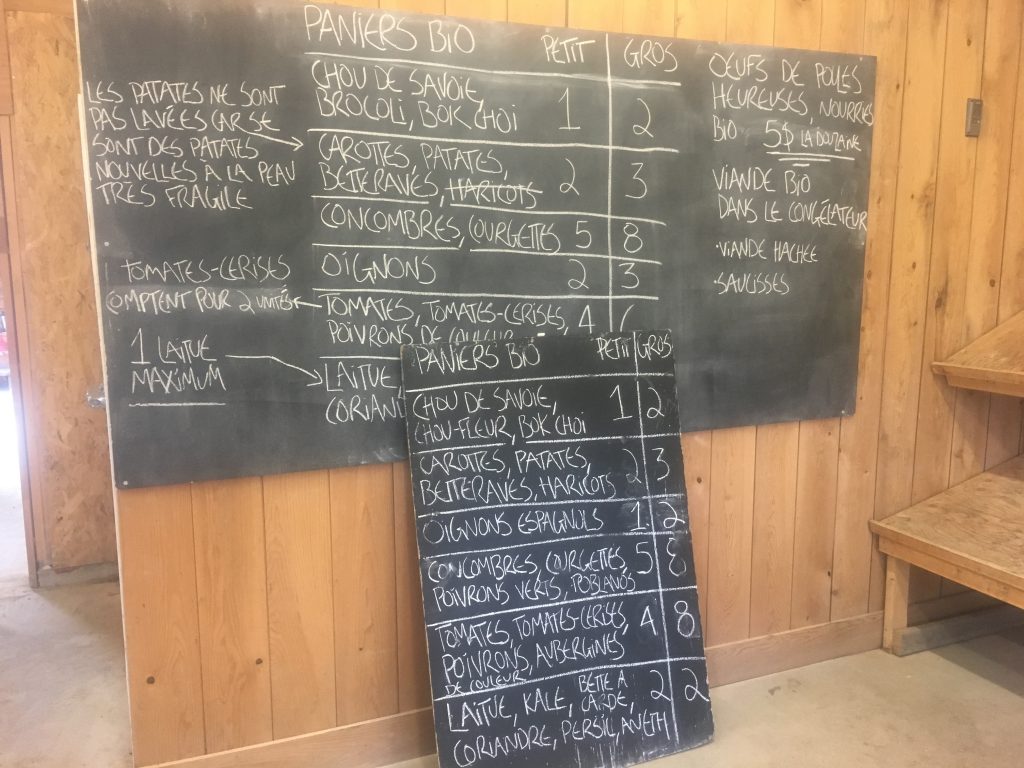 PANIERS BIO PETIT GROS
CHOU DE SAVOIE,
BROCOLI, BOK CHOI 1 2
CAROTTES, PATATES,
BETTERAVES, HARICOTS 2 3
CONCOMBRES, COURGETTES 5 8
OIGNONS 2 3
TOMATES, TOMATES-CERISES, 4
POIVRONS DE
LAITUE
LES PATATES NE SONT
PAS LAVÉES CAR SE
SONT DES PATATES
NOUVELLES À LA PEAU
TRÈS FRAGILE
1 TOMATES-CERISES
COMPTENT POUR 2 UNITÉS
1 LAITUE
MAXIMUM
OEUFS DE POULES
HEUREUSES, NOURRIES
BIO 5$ LA DOUZAINE
VIANDE BIO
DANS LE CONGÉLATEUR
VIANDE HACHÉE
SAUCISSES
PANIERS BIO PETIT GROS
CHOU DE SAVOIE,
CHOU-FLEUR, BOK CHOI 1 2
CAROTTES, PATATES,
BETTERAVES, HARICOTS 2 3
OIGNONS ESPAGNOLS 1 2
CONCOMBRES, COURGETTES, 5 8
POIVRONS VERTS, POBLANOS
TOMATES, TOMATES-CERISES, 4 8
POIVRONS, AUBERGINES
DE COULEUR
LAITUE, KALE, BETTE À CARDE, 2 2
CORIANDRE, PERSIL, ANETH